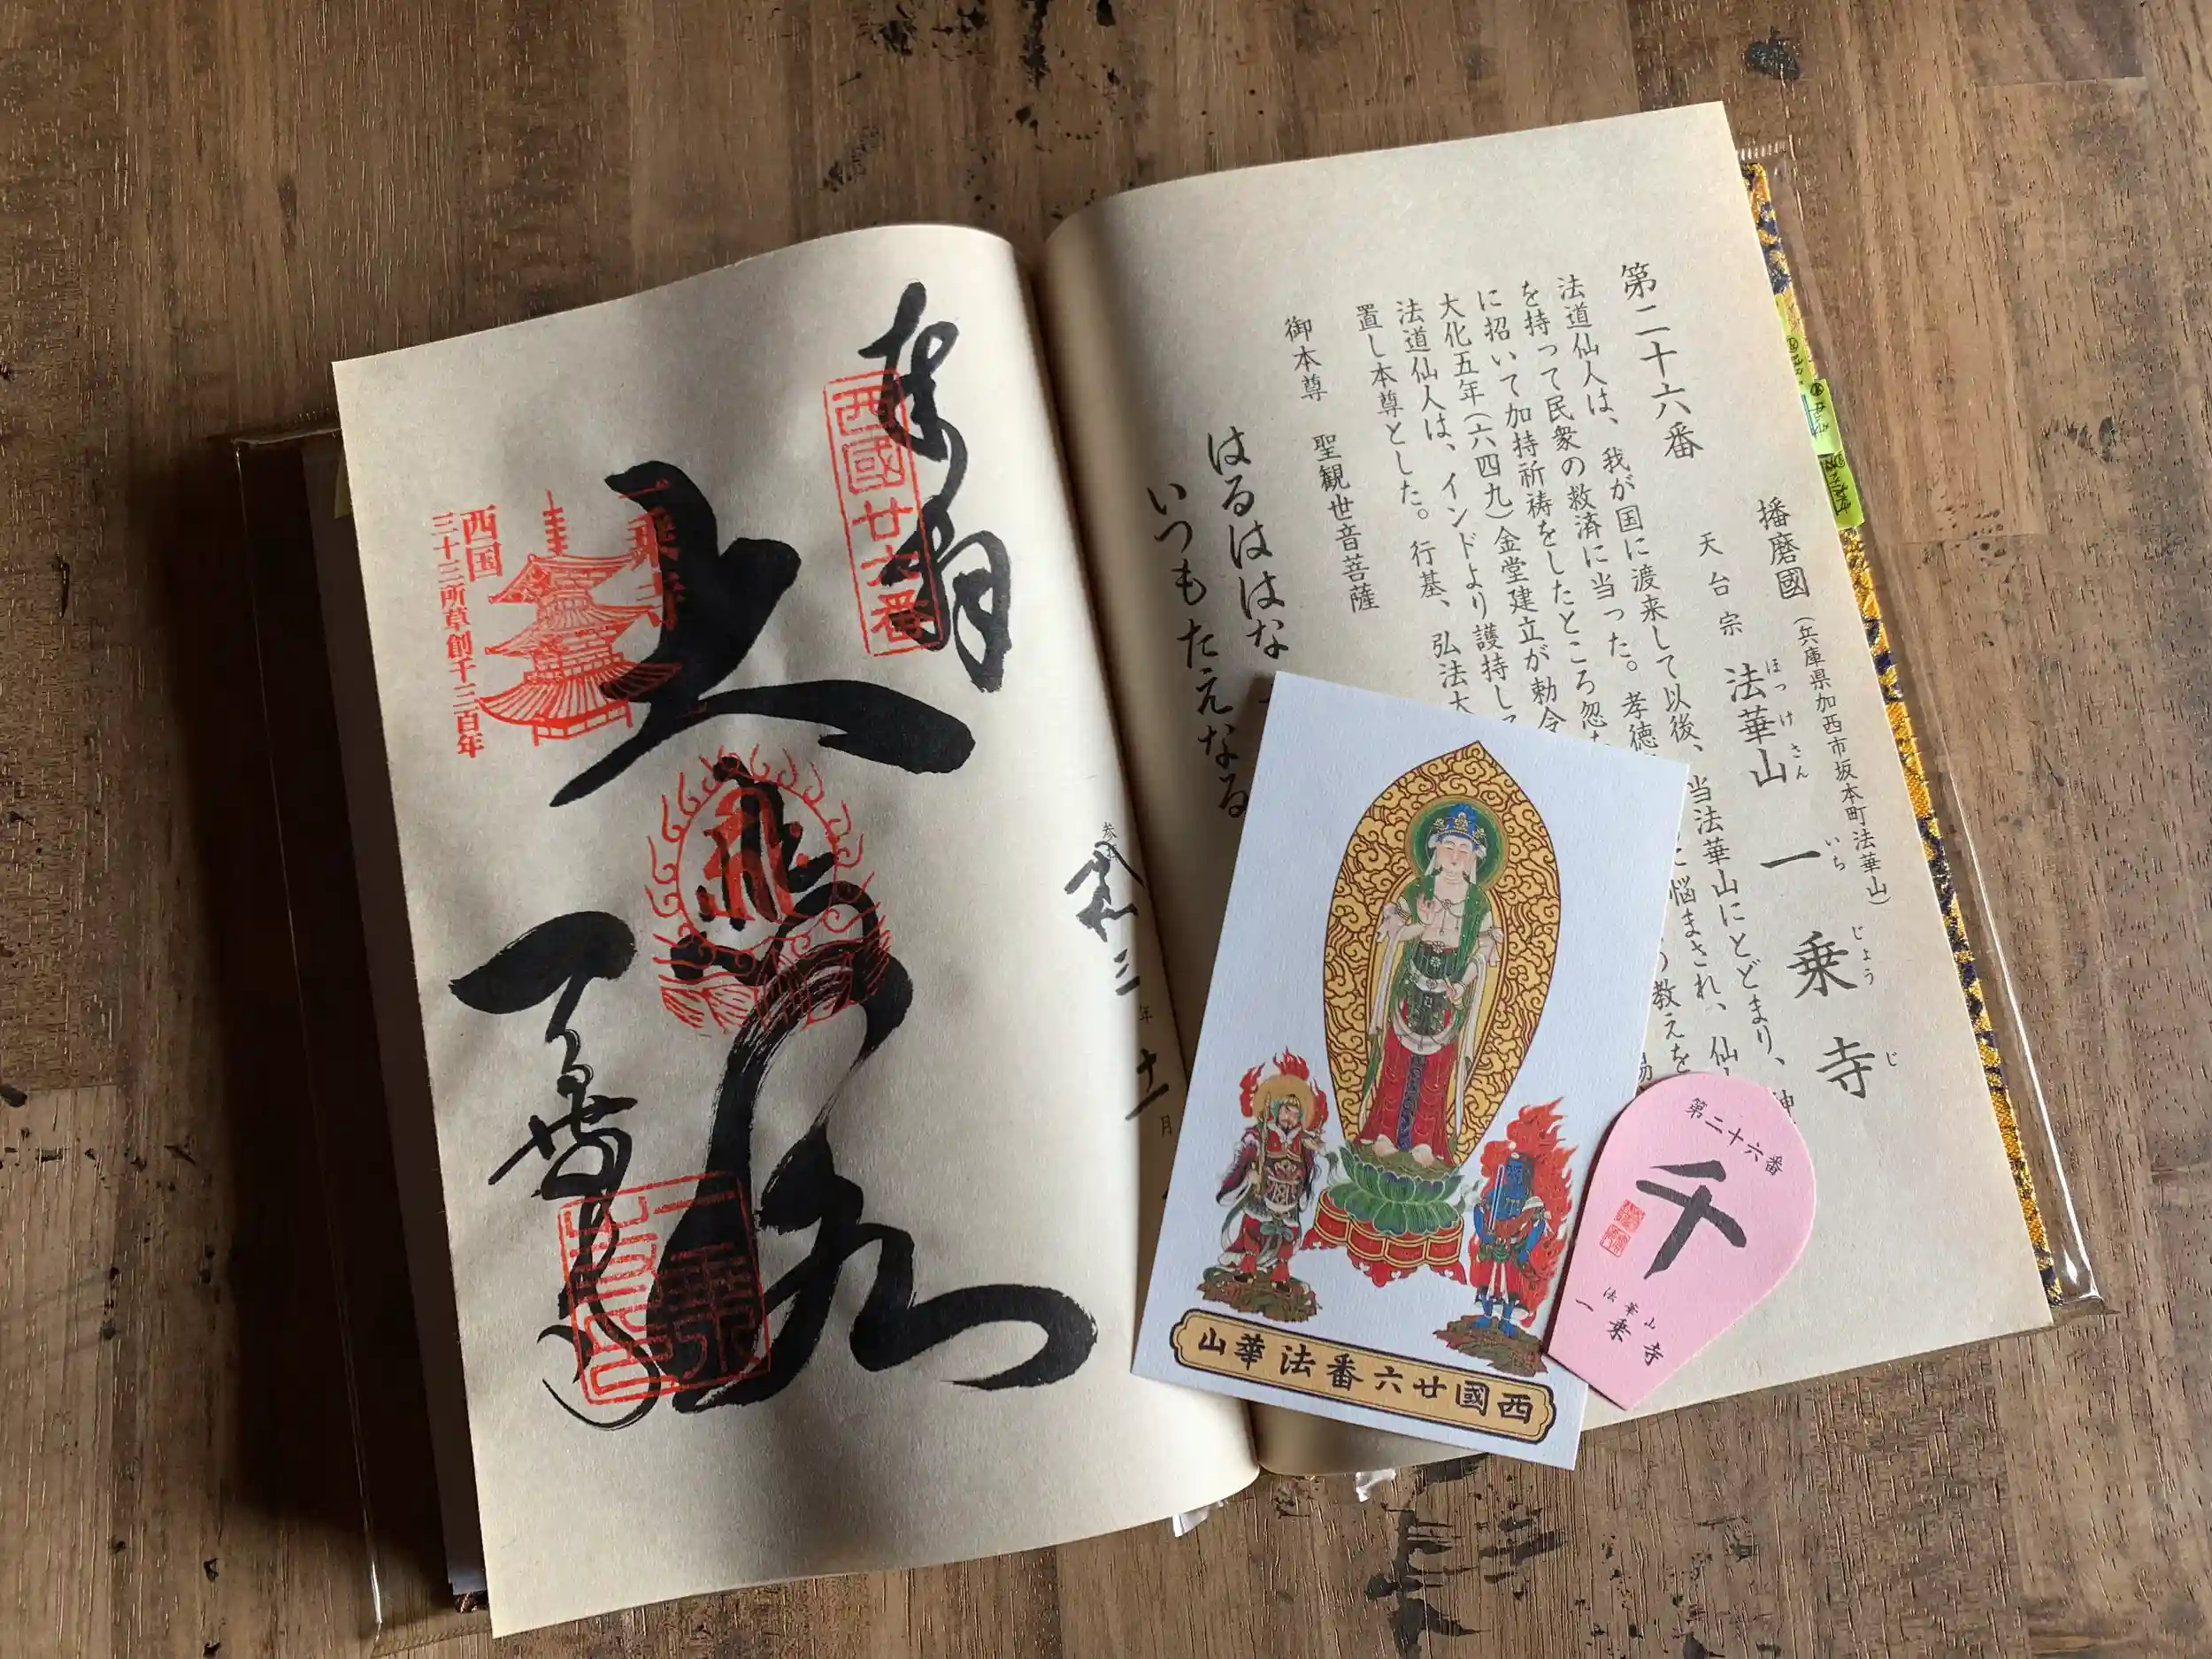 第二十六番
播磨國（兵庫県加西市坂本町法華山）
天台宗 法華山 一乗寺
ほっけさん いちじょうじ
法道仙人は、我が国に渡来して以後、当法華山にとどまり、
を持って民衆の救済に当った。孝徳
に招いて加持祈祷をしたところ忽
大化五年（六四九）金堂建立が勅令
法道仙人は、インドより護持し
置し本尊とした。行基、弘法大
御本尊 聖観世音菩薩
はるははな
いつもたえなる
悩まされ、仙
教えを
三年十一月
奉拝
西國廿六番
大悲殿
一乗寺
一乗寺
西国
三十三所草創千三百年
西國廿六番法華山
第二十六番
千
法華山
一乗寺